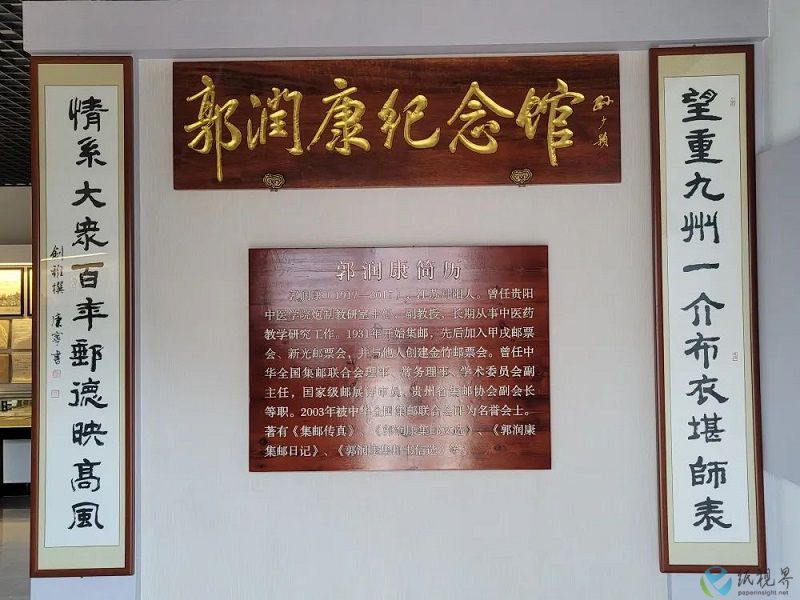 郭润康纪念馆
孙少颖
望重九州一介布衣堪師表
情系大衆百年郵德映髙風
剑雅撰
康宁書
郭润康简历
郭润康（1917—2017），江苏丹阳人。曾任贵阳
中医学院炮制教研室主任、副教授，长期从事中医药
教学研究工作。1931年开始集邮，先后加入甲戌邮票
会、新光邮票会，并与他人创建金竹邮票会。曾任中
华全国集邮联合会理事、常务理事、学术委员会副
主任，国家级邮展评审员、贵州省集邮协会副会长
等职。2003年被中华全国集邮联合会评为名誉会士。
著有《集邮传真》、《郭润康集邮文选》、《郭润康
集邮日记》、《郭润康集邮书信选》等。
纸视界
paperinsight.net